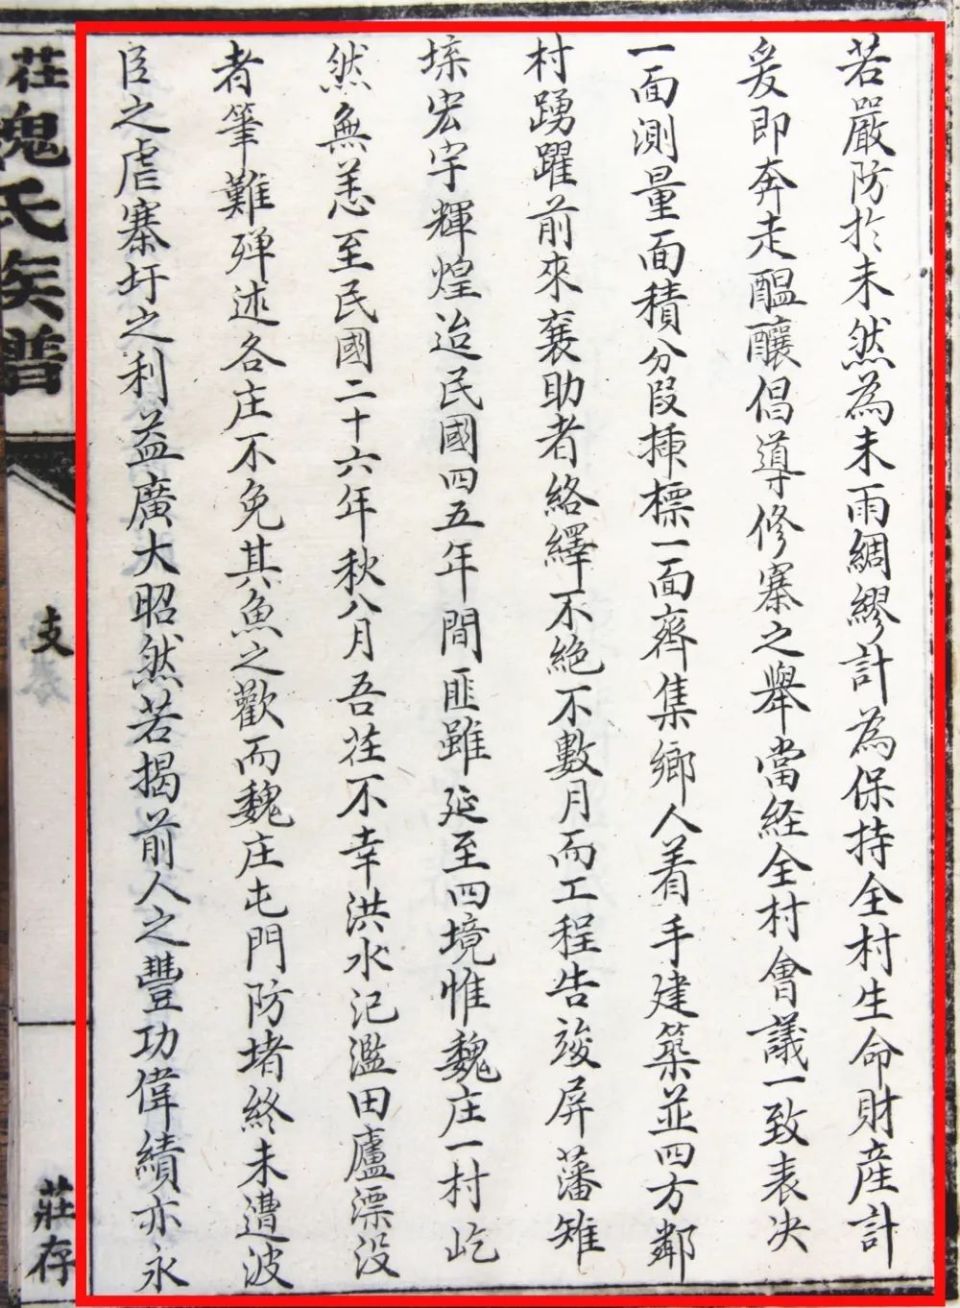 若嚴防於未然為未雨綢繆計為保持全村生命財產計
爰即奔走醖釀倡導修寨之舉當経全村會議一致表决
一面測量面積分段揷標一面齊集鄉人着手建築並四方鄰
村踴躍前來襄助者絡繹不絶不數月而工程告竣屏藩雉
垛宏宇輝煌迨民國四五年間匪雖延至四境惟魏庄一村屹
然無恙至民國二十六年秋八月吾荘不幸洪水汜濫田廬漂没
者筆難殫述各庄不免其魚之歡而魏庄屯門防堵終未遭波
臣之虐寨圩之利益廣大昭然若揭前人之豐功偉績亦永
荘魏氏族譜
支
莊存